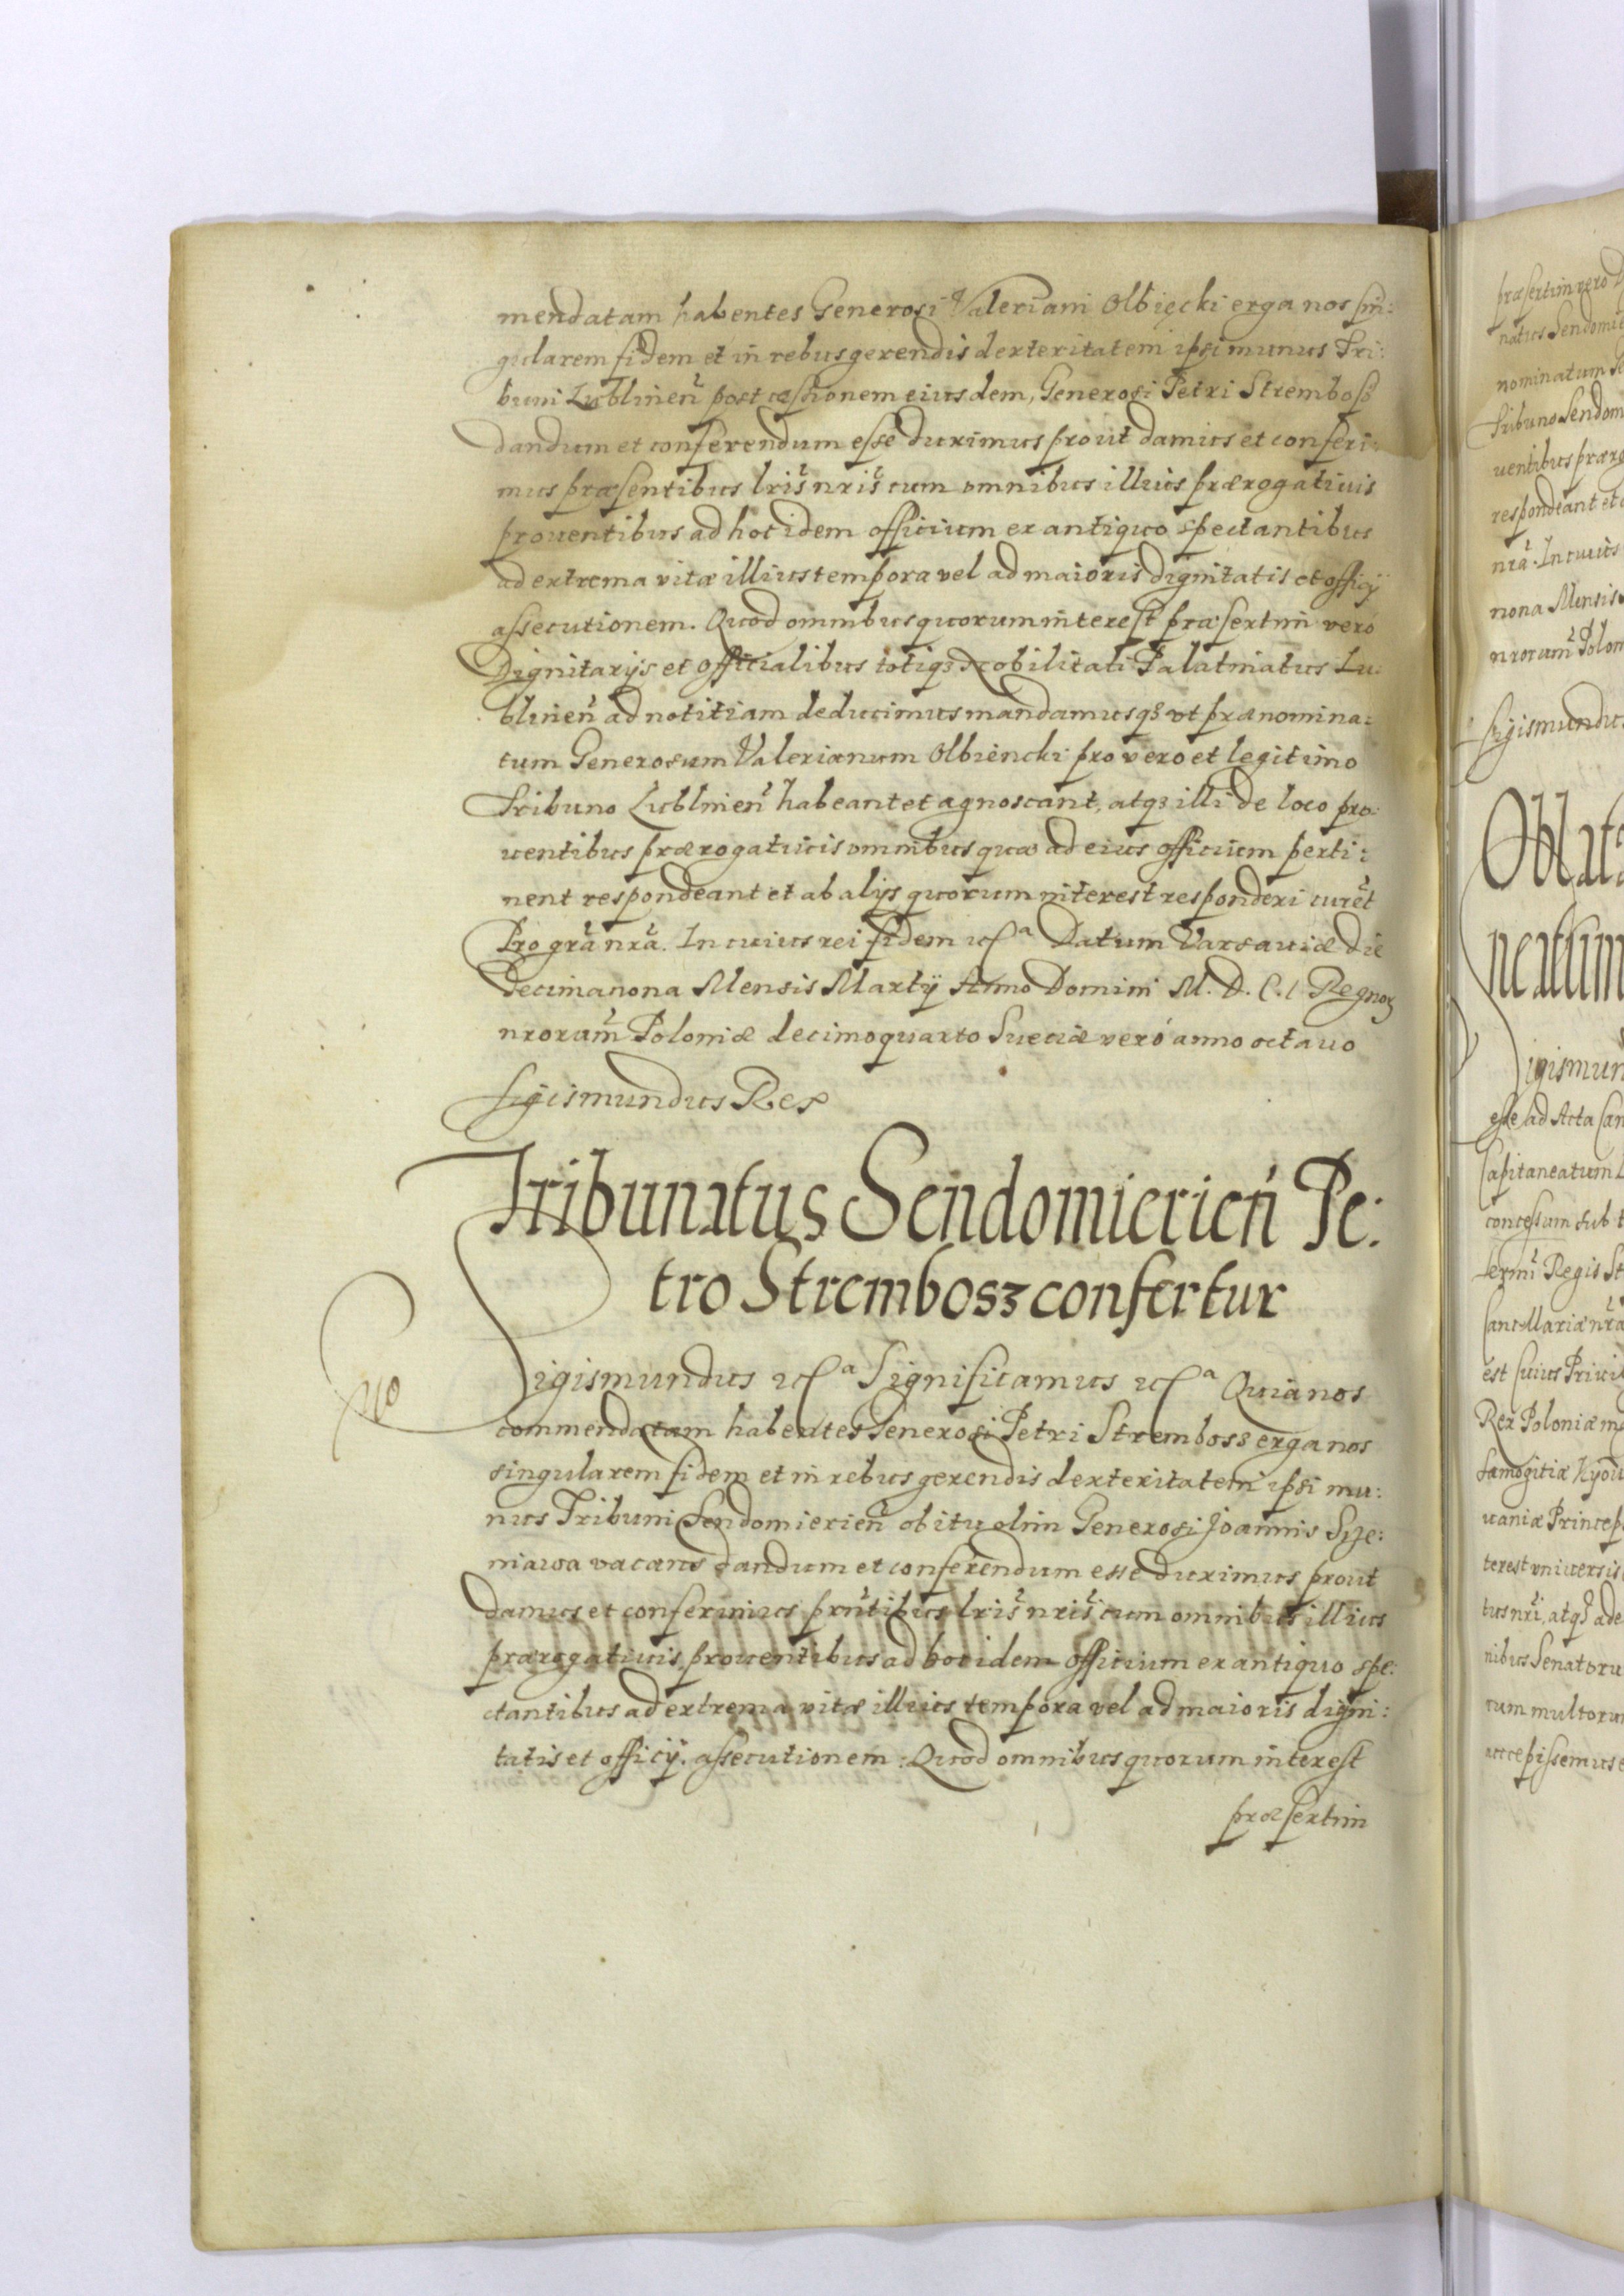 mendatam habentes Generosi Valeriani Olbięcki erga nos sin:
gularem fidem et in rebus gerendis dexteritatem ipsi munus Tri:
buni Lublinen̄ post cessionem eiusdem, Generosi Petri Strembosz
dandum et conferendum esse duximus prout damus et conferi:
mus præsentibus lris̄ nris̄ cum omnibus illius prærogativis
proventibus ad hoc idem officium ex antiquo spectantibus
ad extrema vitæ illius tempora vel ad maioris dignitatis et officij
assecutionem. Quod omnibus quorum interest præsertim vero
Dignitarijs et Officialibus totiqꝫ Nobilitati Palatinatus Lu:
blinen̄ ad notitiam deducimus mandamusqꝫ vt prænomina:
tum Generosum Valerianum Olbiencki pro vero et legitimo
Tribuno Lublinen̄ habeant et agnoscant, atqꝫ illi de loco pro:
uentibus prærogatiuis omnibus quæ ad eius officium perti:
nent respondeant et ab alijs quorum interest responderi curēt
Pro gr̄a nr̄a. In cuius rei fidem ꝛcᵃ Datum Varsauiæ Die
decimanona Mensis Martij Anno Domini M. D. C. I. Regnoꝝ
nrorum̄ Poloniæ decimoquarto Sueciæ veró anno octauo
Sigismundus Rex
Tribunatus Sendomierien̄ Pe:
tro Strembosz confertur
Sigismundus ꝛcᵃ Significamus ꝛcᵃ Quia nos
commendatam habentes Generosi Petri Strembosz erga nos
singularem fidem et in rebus gerendis dexteritatem ipsi mu:
nus Tribuni Sendomierien̄ obitu olim Generosi Joannis Sije:
niawa vacans dandum et conferendum esse duximus prout
damus et conferimus prn̄tibus lris̄ nris̄ cum omnibus illius
prærogatiuis, prouentibus ad hoc idem officium ex antiquo spe:
ctantibus ad extrema vitæ illius tempora vel ad maioris digni:
tatis et officij. assecutionem: Quod omnibus quorum interest
præsertim
præsertim vero D
natus Sendomie
nominatum
Tribuno Sendom
uentibus prærog
respondeant et
nr̄a. In cuius
nona Mensis
nrorum̄ Polon
Sigismundus
Oblata
neatum
Sigismun
esse ad Acta Can
Capitaneatum
concessum sub t
Regis St
Cancellariæ nr̄æ
est cuius Priui
Rex Poloniæ m
Samogitiæ Kyou
uaniæ Princeps
terest vniuersis
tus nr̄i, atqꝫ ade
nibus Senatoru
cum multorum
accepissemus e